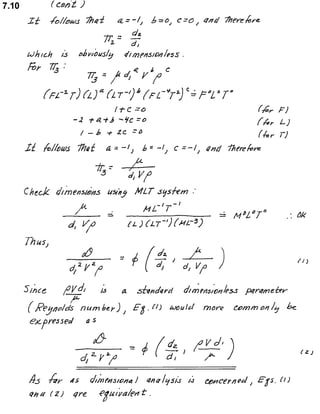 7.10
(con't)
It follows that a = -1, b = 0, c = 0, and therefore
π₂ = d₂/d₁
which is obviously dimensionless.
For π₃:
π₃ = μ d₁ᵃ Vᵇ ρᶜ
(FL⁻²T)(L)ᵃ(LT⁻¹)ᵇ(FL⁻⁴T²)ᶜ ≐ F⁰L⁰T⁰
1 + c = 0 (for F)
-2 + a + b - 4c = 0 (for L)
1 - b + 2c = 0 (for T)
It follows that a = -1, b = -1, c = -1, and therefore
π₃ = μ/(d₁Vρ)
Check dimensions using MLT system:
μ/(d₁Vρ) ≐ ML⁻¹T⁻¹/((L)(LT⁻¹)(ML⁻³)) ≐ M⁰L⁰T⁰ ∴ OK
Thus,
𝒟/(d₁²V²ρ) = φ(d₂/d₁, μ/(d₁Vρ)) (1)
Since ρVd₁/μ is a standard dimensionless parameter
(Reynolds number), Eq.(1) would more commonly be
expressed as
𝒟/(d₁²V²ρ) = φ(d₂/d₁, ρVd₁/μ) (2)
As far as dimensional analysis is concerned, Eqs.(1)
and (2) are equivalent.